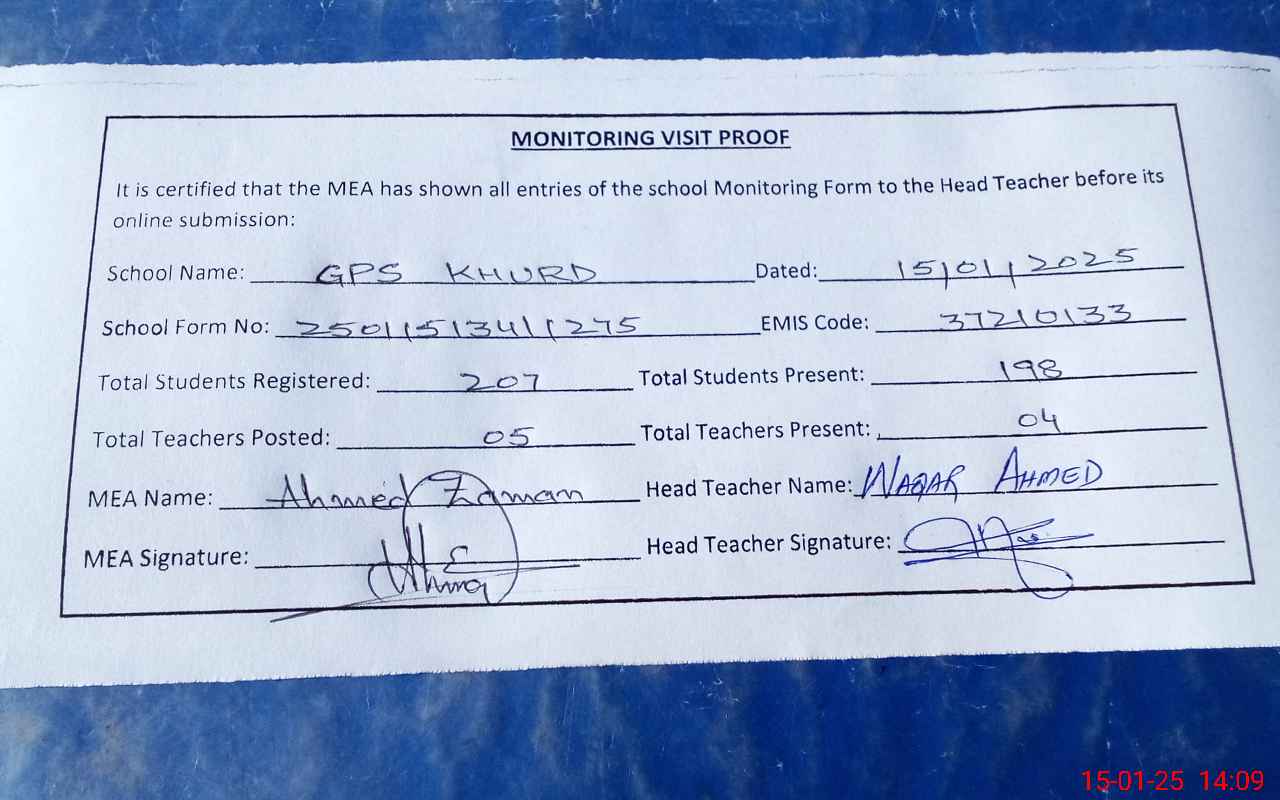 MONITORING VISIT PROOF
It is certified that the MEA has shown all entries of the school Monitoring Form to the Head Teacher before its
online submission:
School Name: GPS KHURD Dated: 15/01/2025
School Form No: 25011513411275 EMIS Code: 37210133
Total Students Registered: 207 Total Students Present: 198
Total Teachers Posted: 05 Total Teachers Present: 04
MEA Name: Ahmed Zaman Head Teacher Name: WAQAR AHMED
MEA Signature: Head Teacher Signature:
15-01-25 14:09